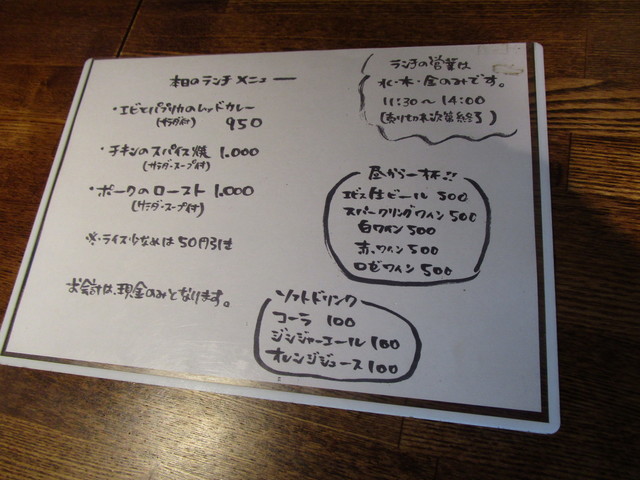 本日のランチメニュー
・エビとパプリカのレッドカレー
(サラダ付) 950
・チキンのスパイス焼 1.000
(サラダ・スープ付)
・ポークのロースト 1.000
(サラダ・スープ付)
※・ライス少なめは50円引き
お会計は、現金のみとなります。
ランチの営業は
水・木・金のみです。
11:30～14:00
(売り切れ次第終了)
昼から一杯!!
エビス生ビール 500
スパークリングワイン 500
白ワイン 500
赤ワイン 500
ロゼワイン 500
ソフトドリンク
コーラ 100
ジンジャーエール 100
オレンジジュース 100